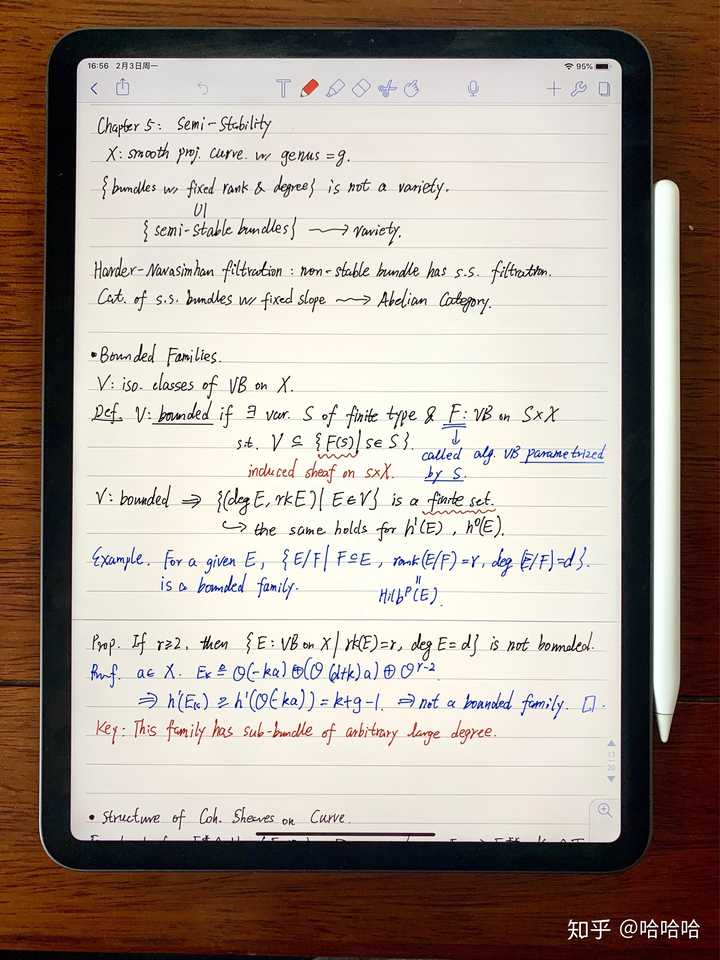 16:56 2月3日周一
95%
Chapter 5: Semi-Stability
X: smooth proj. curve. w/ genus = g.
{bundles w/ fixed rank & degree} is not a variety.
∪|
{semi-stable bundles} ⟿ variety.
Harder-Narasimhan filtration: non-stable bundle has s.s. filtration.
Cat. of s.s. bundles w/ fixed slope ⟿ Abelian Category.
• Bounded Families.
V: iso. classes of VB on X.
Def. V: bounded if ∃ var. S of finite type & F: VB on S×X
s.t. V ⊆ {F(s) | s∈S}.
↓
called alg. VB parametrized
induced sheaf on s×X.
by S.
V: bounded ⇒ {(deg E, rk E) | E∈V} is a finite set.
↪ the same holds for h¹(E), h⁰(E).
Example. For a given E, {E/F | F⊆E, rank(E/F)=r, deg(E/F)=d}.
is a bounded family.
||
Hilbᴾ(E).
Prop. If r≥2, then {E: VB on X | rk(E)=r, deg E=d} is not bounded.
Proof. a∈X. Eₖ ≜ O(-ka)⊕(O(d+k)a)⊕O^{r-2}
⇒ h¹(Eₖ) ≥ h¹(O(-ka)) = k+g-1. ⇒ not a bounded family. □.
Key: This family has sub-bundle of arbitrary large degree.
• Structure of Coh. Sheaves on Curve.
知乎 @哈哈哈